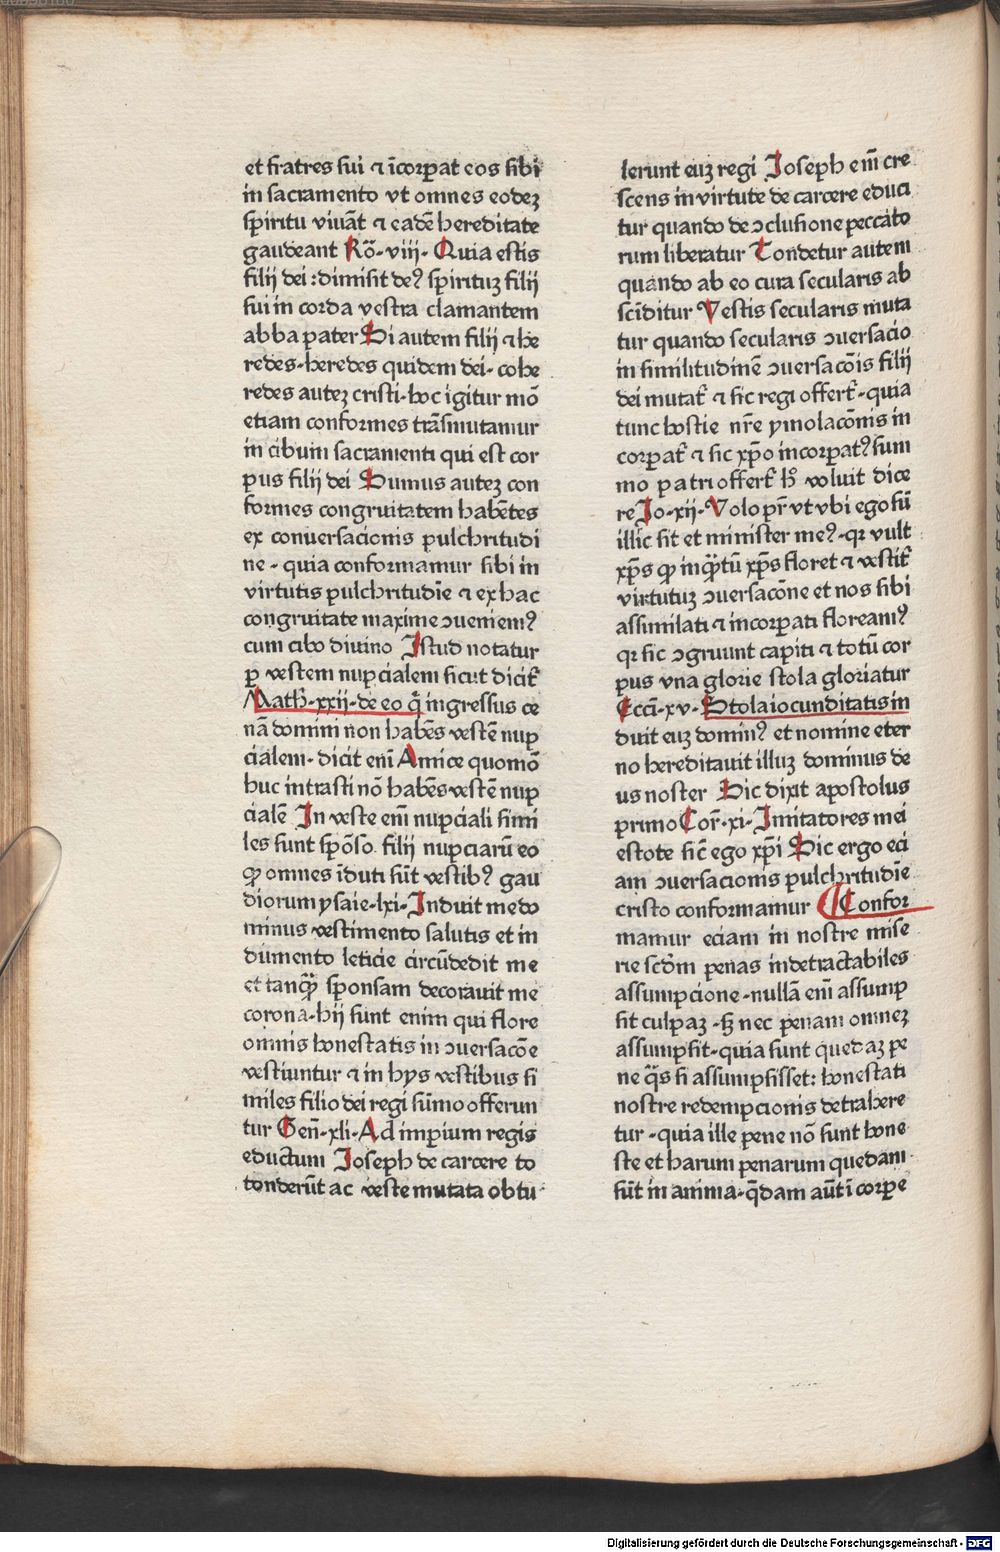 et fratres sui ⁊ īcorꝑat eos sibi
in sacramento vt omnes eodeꝫ
spiritu viuāt ⁊ eadē hereditate
gaudeant Rō· viii· Quia estis
filij dei : dimisit deꝰ spirituꝫ filij
sui in corda vestra clamantem
abba pater Si autem filij ⁊ he
redes· heredes quidem dei· cohe
redes auteꝫ cristi· hoc igitur mō
etiam conformes trāsmutamur
in cibum sacramenti qui est cor
pus filij dei Sumus auteꝫ con
formes congruitatem habētes
ex conuersacionis pulchritudi
ne · quia conformamur sibi in
virtutis pulchritudīe ⁊ ex hac
congruitate maxime ꝯueniemꝰ
cum cibo diuino Istud notatur
ꝑ vestem nupcialem sicut dicit᷑
Math· xxii· de eo q̄ ingressus ce
nā domini non habēs vestē nup
cialem· dicit enī Amice quomō
huc intrasti nō habēs vestē nup
cialē In veste enī nupciali simi
les sunt spōso. filij nupciarū eo
ꝙ omnes īduti sūt vestibꝰ gau
diorum ysaie· lxi· Induit me do
minus vestimento salutis et in
dumento leticie circūdedit me
et tanq̄ꝫ sponsam decorauit me
corona· hij sunt enim qui flore
omnis honestatis in ꝯuersacōe
vestiuntur ⁊ in hys vestibus si
miles filio dei regi sūmo offerun
tur Gen̄· xli· Ad imperium regis
eductum Ioseph de carcere to
tonderūt ac veste mutata obtu
lerunt euꝫ regi Ioseph enī cre
scens in virtute de carcere educi
tur quando de ꝯclusione peccato
rum liberatur Tondetur autem
quando ab eo cura secularis ab
scīditur Vestis secularis muta
tur quando secularis ꝯuersacio
in similitudinē ꝯuersacōis filij
dei mutat᷑ ⁊ sic regi offert᷑· quia
tunc hostie nr̄e ymolacōnis in
corꝑat᷑ ⁊ sic xp̄o incorꝑatꝰ sum
mo patri offert᷑ hͦ voluit dice
re Io· xii· Volo pr̄ vt vbi ego sū
illic sit et minister meꝰ· qꝛ vult
xp̄s ꝙ inq̄ꝫtū xp̄s floret ⁊ vestit᷑
virtutuꝫ ꝯuersacōne et nos sibi
assimilati ⁊ incorꝑati floreamꝰ
qꝛ sic ꝯgruunt capiti ⁊ totū cor
pus vna glorie stola gloriatur
Ecci̅· xv· Stola iocunditatis in
duit euꝫ dominꝰ et nomine eter
no hereditauit illuꝫ dominus de
us noster Sic dixit apostolus
primo Cor̄· xi· Imitatores mei
estote sic̄ ego xp̄i Sic ergo eci
am ꝯuersacionis pulchritudīe
cristo conformamur ¶ Confor
mamur eciam in nostre mise
rie scd̄m penas indetractabiles
assumpcione · nullā enī assump
sit culpaꝫ · sꝫ nec penam omneꝫ
assumpsit· quia sunt quedaꝫ pe
ne q̄s si assumpsisset : honestati
nostre redempcionis detrahere
tur · quia ille pene nō sunt hone
ste et harum penarum quedam
sūt in anima· q̄dam aūt ī corꝑe
Digitalisierung gefördert durch die Deutsche Forschungsgemeinschaft - DFG